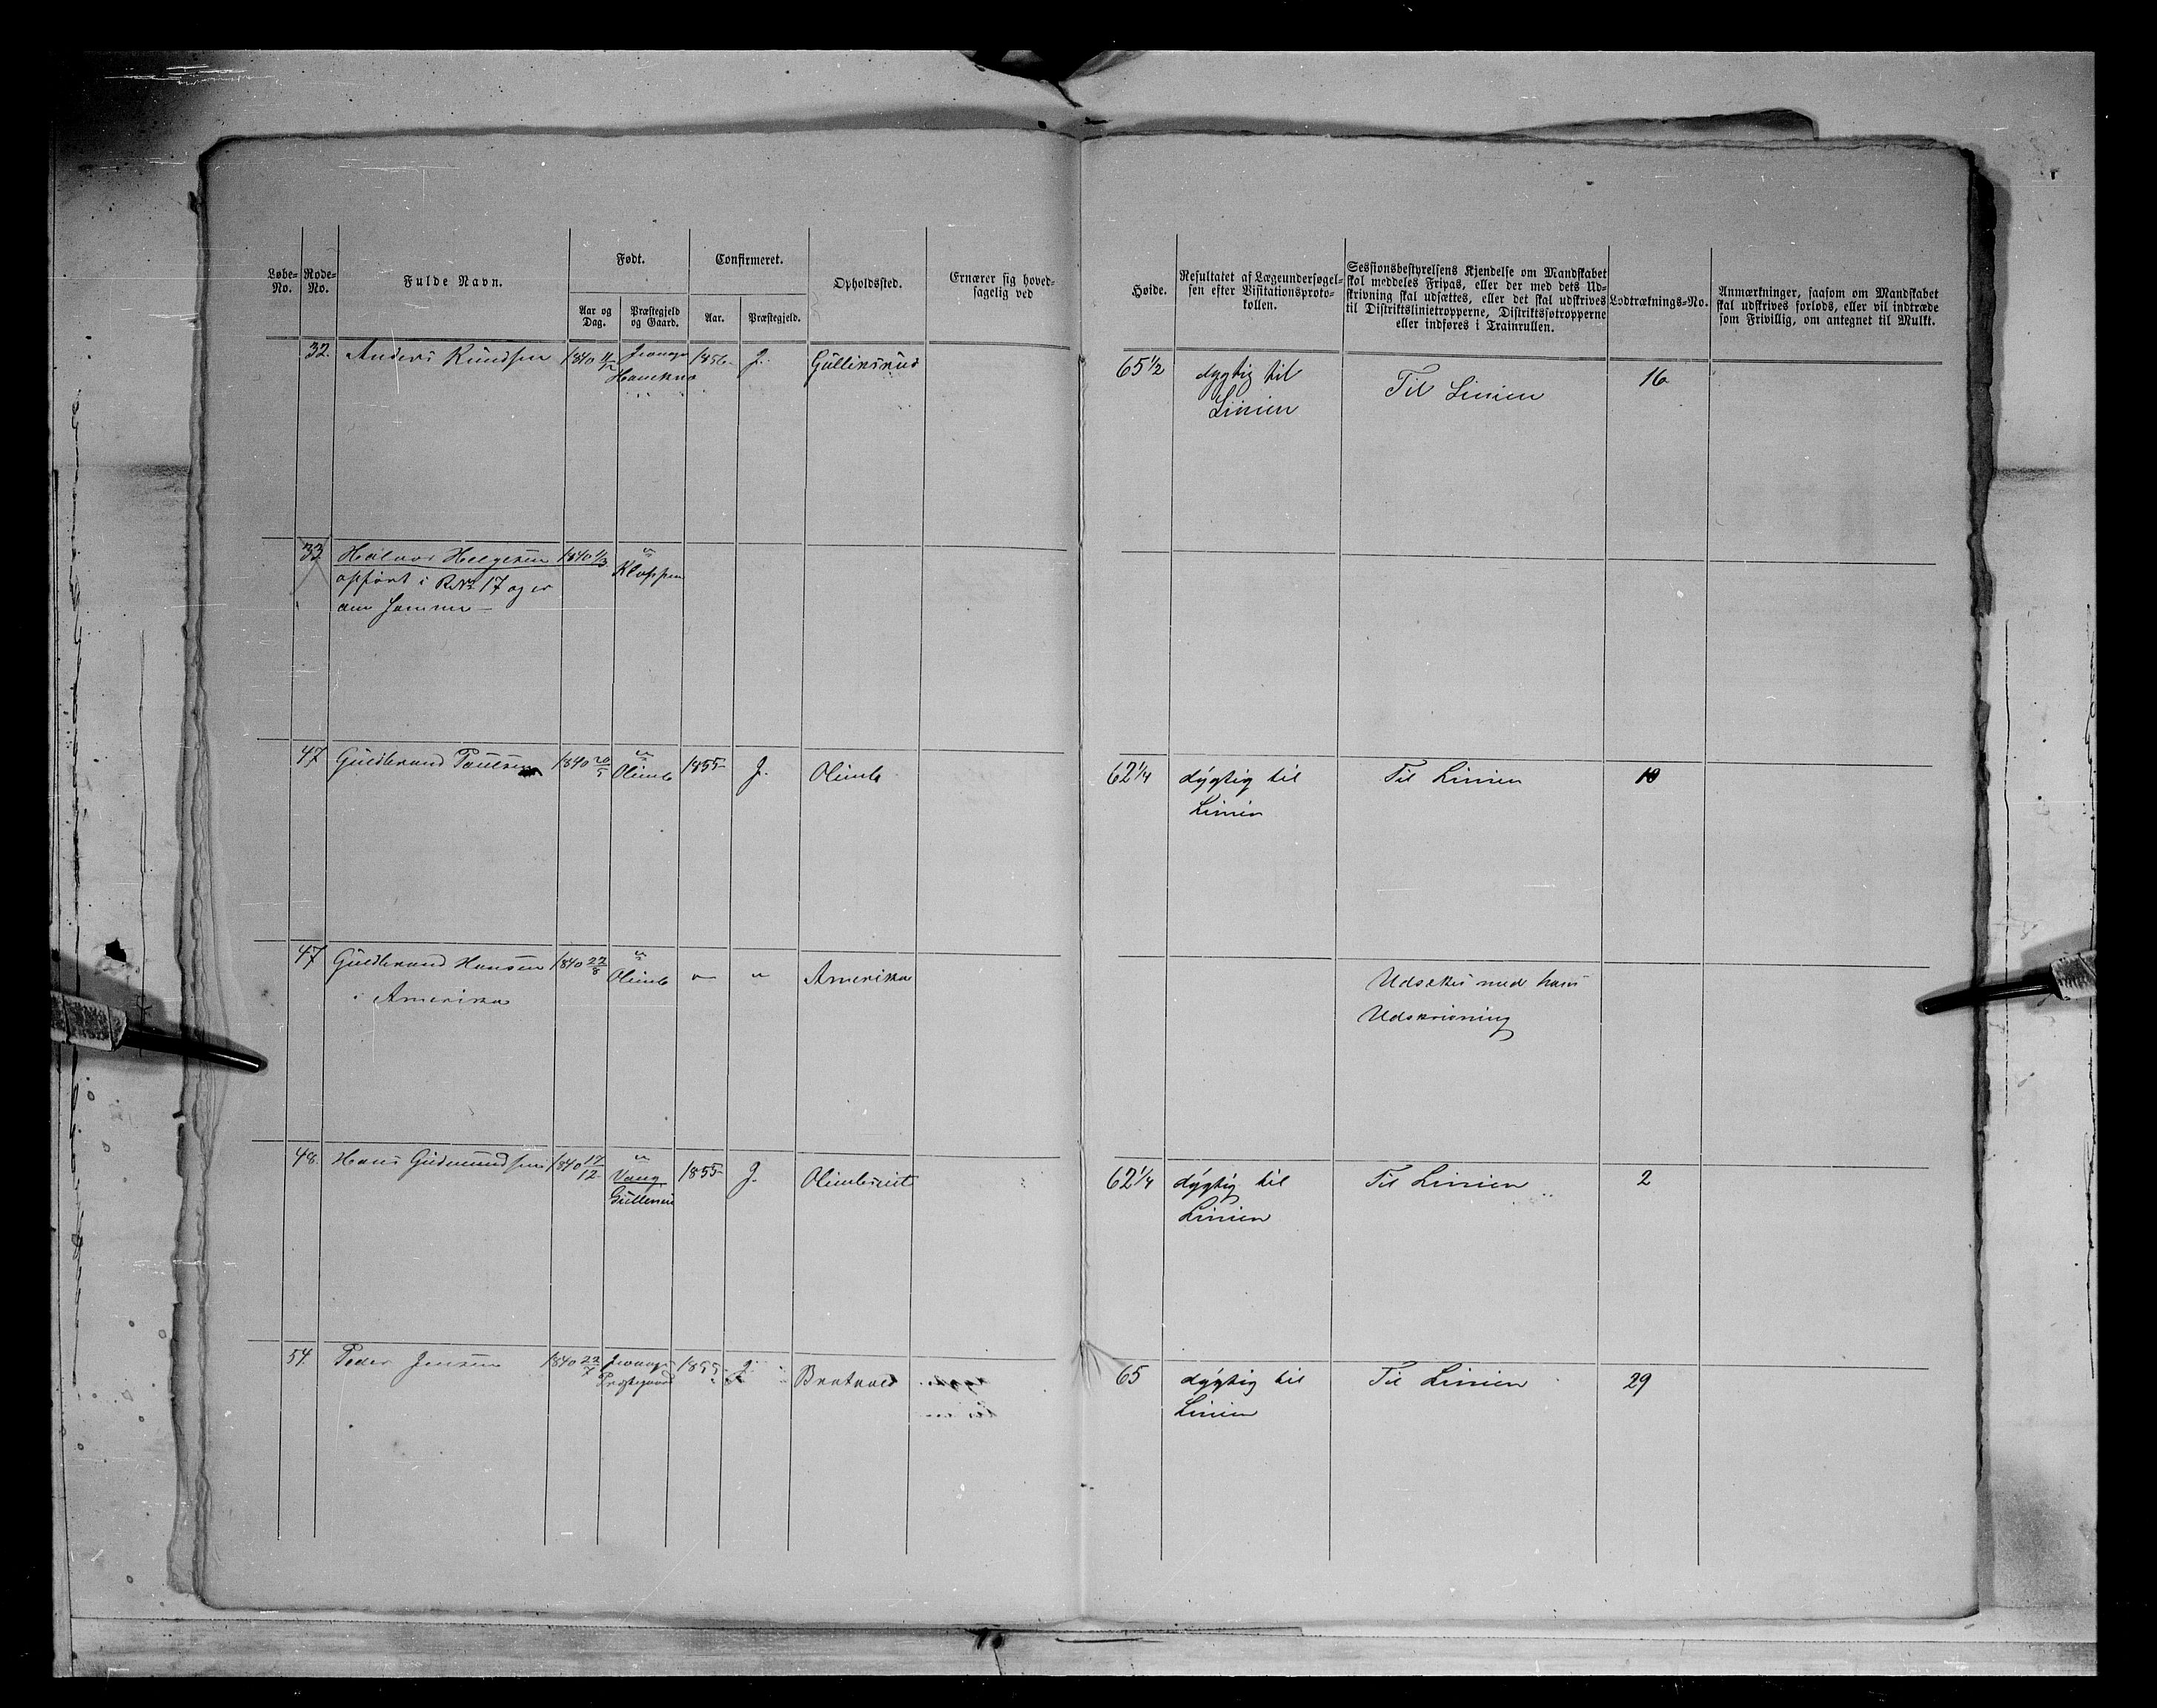 Løbe-No.
Rode-No.
Fulde Navn.
Født.
Aar og Dag.
Præstegjeld og Gaard.
Confirmeret.
Aar.
Præstegjeld.
Opholdssted.
Ernærer sig hoved-
sagelig ved
Høide.
Resultatet af Lægeundersøgel-
sen efter Visitationsproto-
kollen.
Sessionsbestyrelsens Kjendelse om Mandskabet
skal meddeles Fripas, eller der med dets Ud-
skrivning skal udsættes, eller det skal udskrives
til Distriktslinietropperne, Distriktssøtropperne
eller indføres i Trainrullen.
Lodtræknings-No.
Anmærkninger, saasom om Mandskabet
skal udskrives forlods, eller vil indtræde
som Frivillig, om antegnet til Mulkt.
32. Anders Knudsen 1840 1856 J. Gulliksrud 65 1/2 dygtig til Til Linien 16
Linien
33 Halvor Helgesen 1840 1/3 " Kloppen
opført i RNo 17 og er
den samme
47 Guldbrand Paulsen 1840 20/5 " Olimb 1855 J. Olimb 62 1/4 dygtig til Til Linien 10
Linien
47 Guldbrand Hansen 1840 22/8 " Olimb " " Amerika Udsættes med hans
i Amerika Udskrivning
48. Hans Gudmundsen 1840 17/12 " Vang 1855 J. Olimbseiet 62 1/4 dygtig til Til Linien 2
Linien
54. Peder Jensen 1840 22/7 Præstegaard 1855 J. Bratvold 65 dygtig til Til Linien 29
Linien